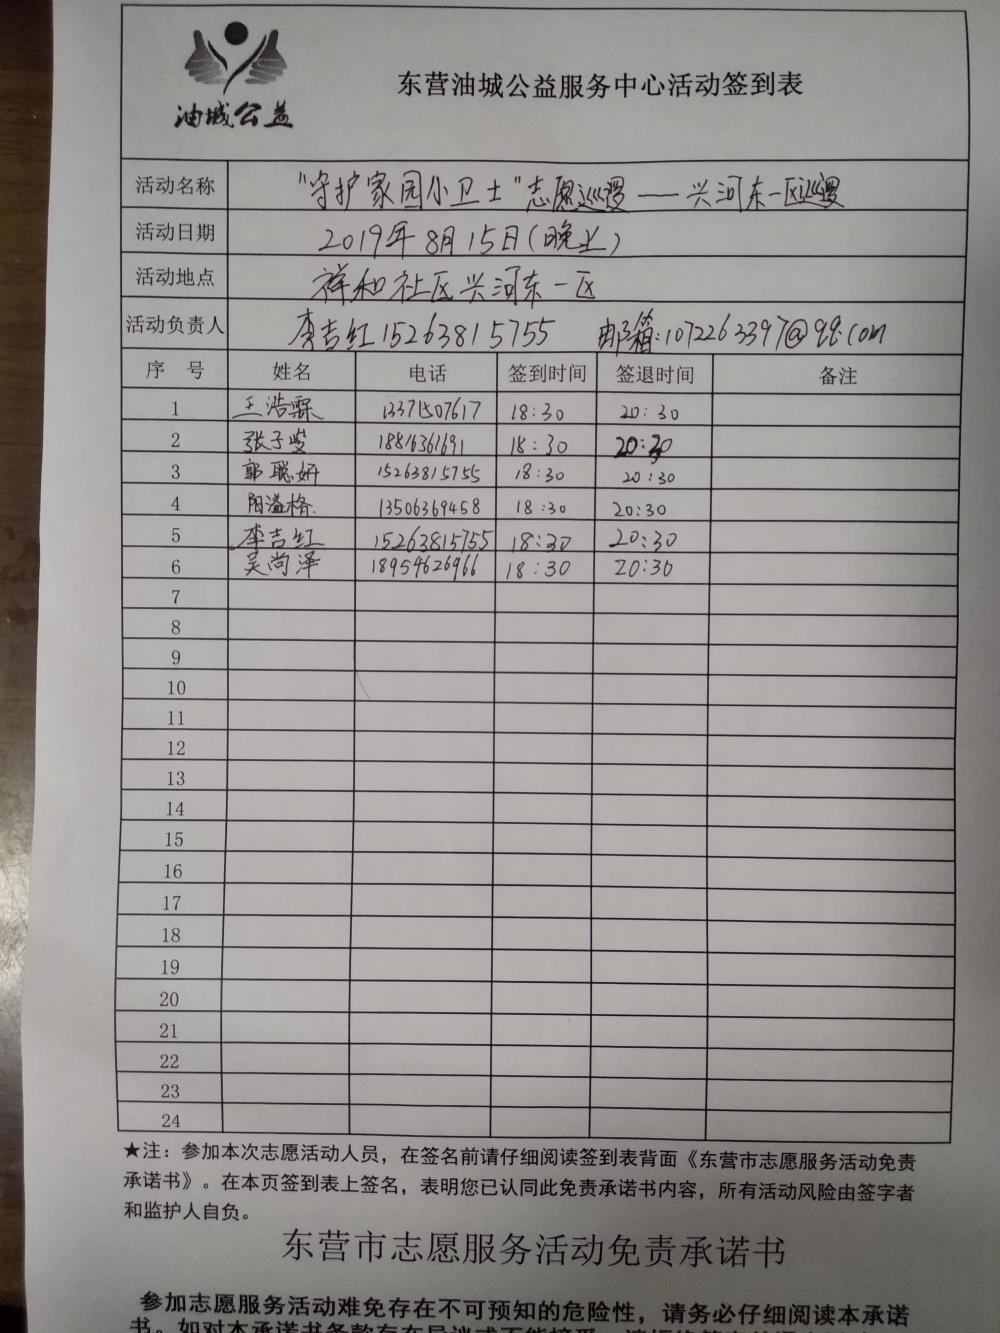 油城公益
东营油城公益服务中心活动签到表
活动名称 "守护家园小卫士"志愿巡逻——兴河东一区巡逻
活动日期 2019年8月15日(晚上)
活动地点 祥和社区兴河东一区
活动负责人 李吉红15263815755 邮箱:1072263397@qq.com
序 号 姓名 电话 签到时间 签退时间 备注
1 王浩霖 13371507617 18:30 20:30
2 张子 18816361691 18:30 20:30
3 郭聪妍 15263815755 18:30 20:30
4 阳溢格 13506369458 18:30 20:30
5 李吉红 15263815755 18:30 20:30
6 吴尚泽 18954626966 18:30 20:30
7
8
9
10
11
12
13
14
15
16
17
18
19
20
21
22
23
24
★注：参加本次志愿活动人员，在签名前请仔细阅读签到表背面《东营市志愿服务活动免责
承诺书》。在本页签到表上签名，表明您已认同此免责承诺书内容，所有活动风险由签字者
和监护人自负。
东营市志愿服务活动免责承诺书
参加志愿服务活动难免存在不可预知的危险性，请务必仔细阅读本承诺
书。如对本承诺书条款存在异议或不能接受，请拒绝